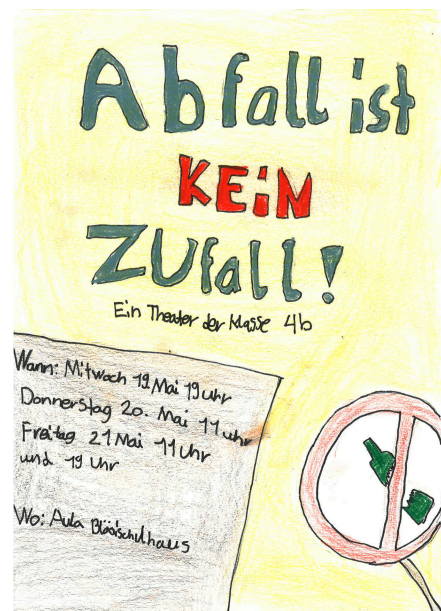 Abfall ist
KEiN
ZUfall!
Ein Theater der Klasse 4b
Wann: Mittwoch 19 Mai 19 uhr
Donnerstag 20. Mai 11 uhr
Freitag 21 Mai 11 Uhr
und 19 Uhr
Wo: Aula Bläsischulhaus